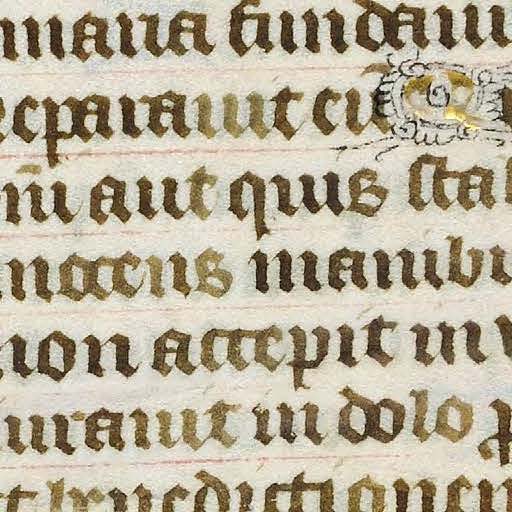 maria fundaui
eparauit eu
nī aut quis stab
nnocens manibu
non accepit in v
iurauit in dolo p
t benedictionem